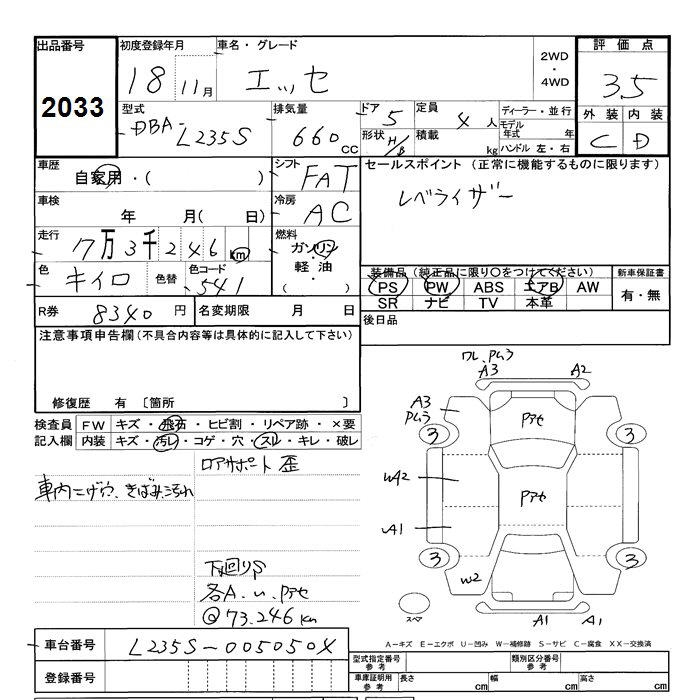 出品番号 初度登録年月 車名・グレード 2WD・4WD 評価点
2033 18 11月 エッセ 3.5
型式 排気量 ドア 定員 ディーラー・並行 外装 内装
DBA-L235S 660cc 5 4人 モデル年式 年 C D
形状 H/B 積載 kg ハンドル 左・右
車歴 シフト セールスポイント (正常に機能するものに限ります)
自家用・( ) FAT レベライザー
車検 冷房
年 月( 日) AC
走行 燃料
7万3千246km ガソリン・軽油・( )
色 色替 色コード 装備品 (純正品に限り○をつけてください) 新車保証書
キイロ 541 PS PW ABS エアB AW 有・無
SR ナビ TV 本革
R券 8340円 名変期限 月 日 後日品
注意事項申告欄(不具合内容等は具体的に記入して下さい)
修復歴 有 〔箇所 〕
検査員記入欄 FW キズ・飛石・ヒビ割・リペア跡・×要
内装 キズ・汚レ・コゲ・穴・スレ・キレ・破レ
ロアサポート 歪
車内コゲ穴、きばみ汚れ
下廻りS
各A.u.Pアセ
@73.246km
ワレ.Pムラ
A3 A2
A3
Pムラ
Pアセ
3 3
Pアセ
wA2
A1
3 3
w2
スペア
A1 A1
A-キズ E-エクボ U-凹み W-補修跡 S-サビ C-腐食 XX-交換済
車台番号 L235S-005050X
登録番号
型式指定番号 参考 類別区分番号 参考
車庫証明用 参考 長さ cm 幅 cm 高さ cm